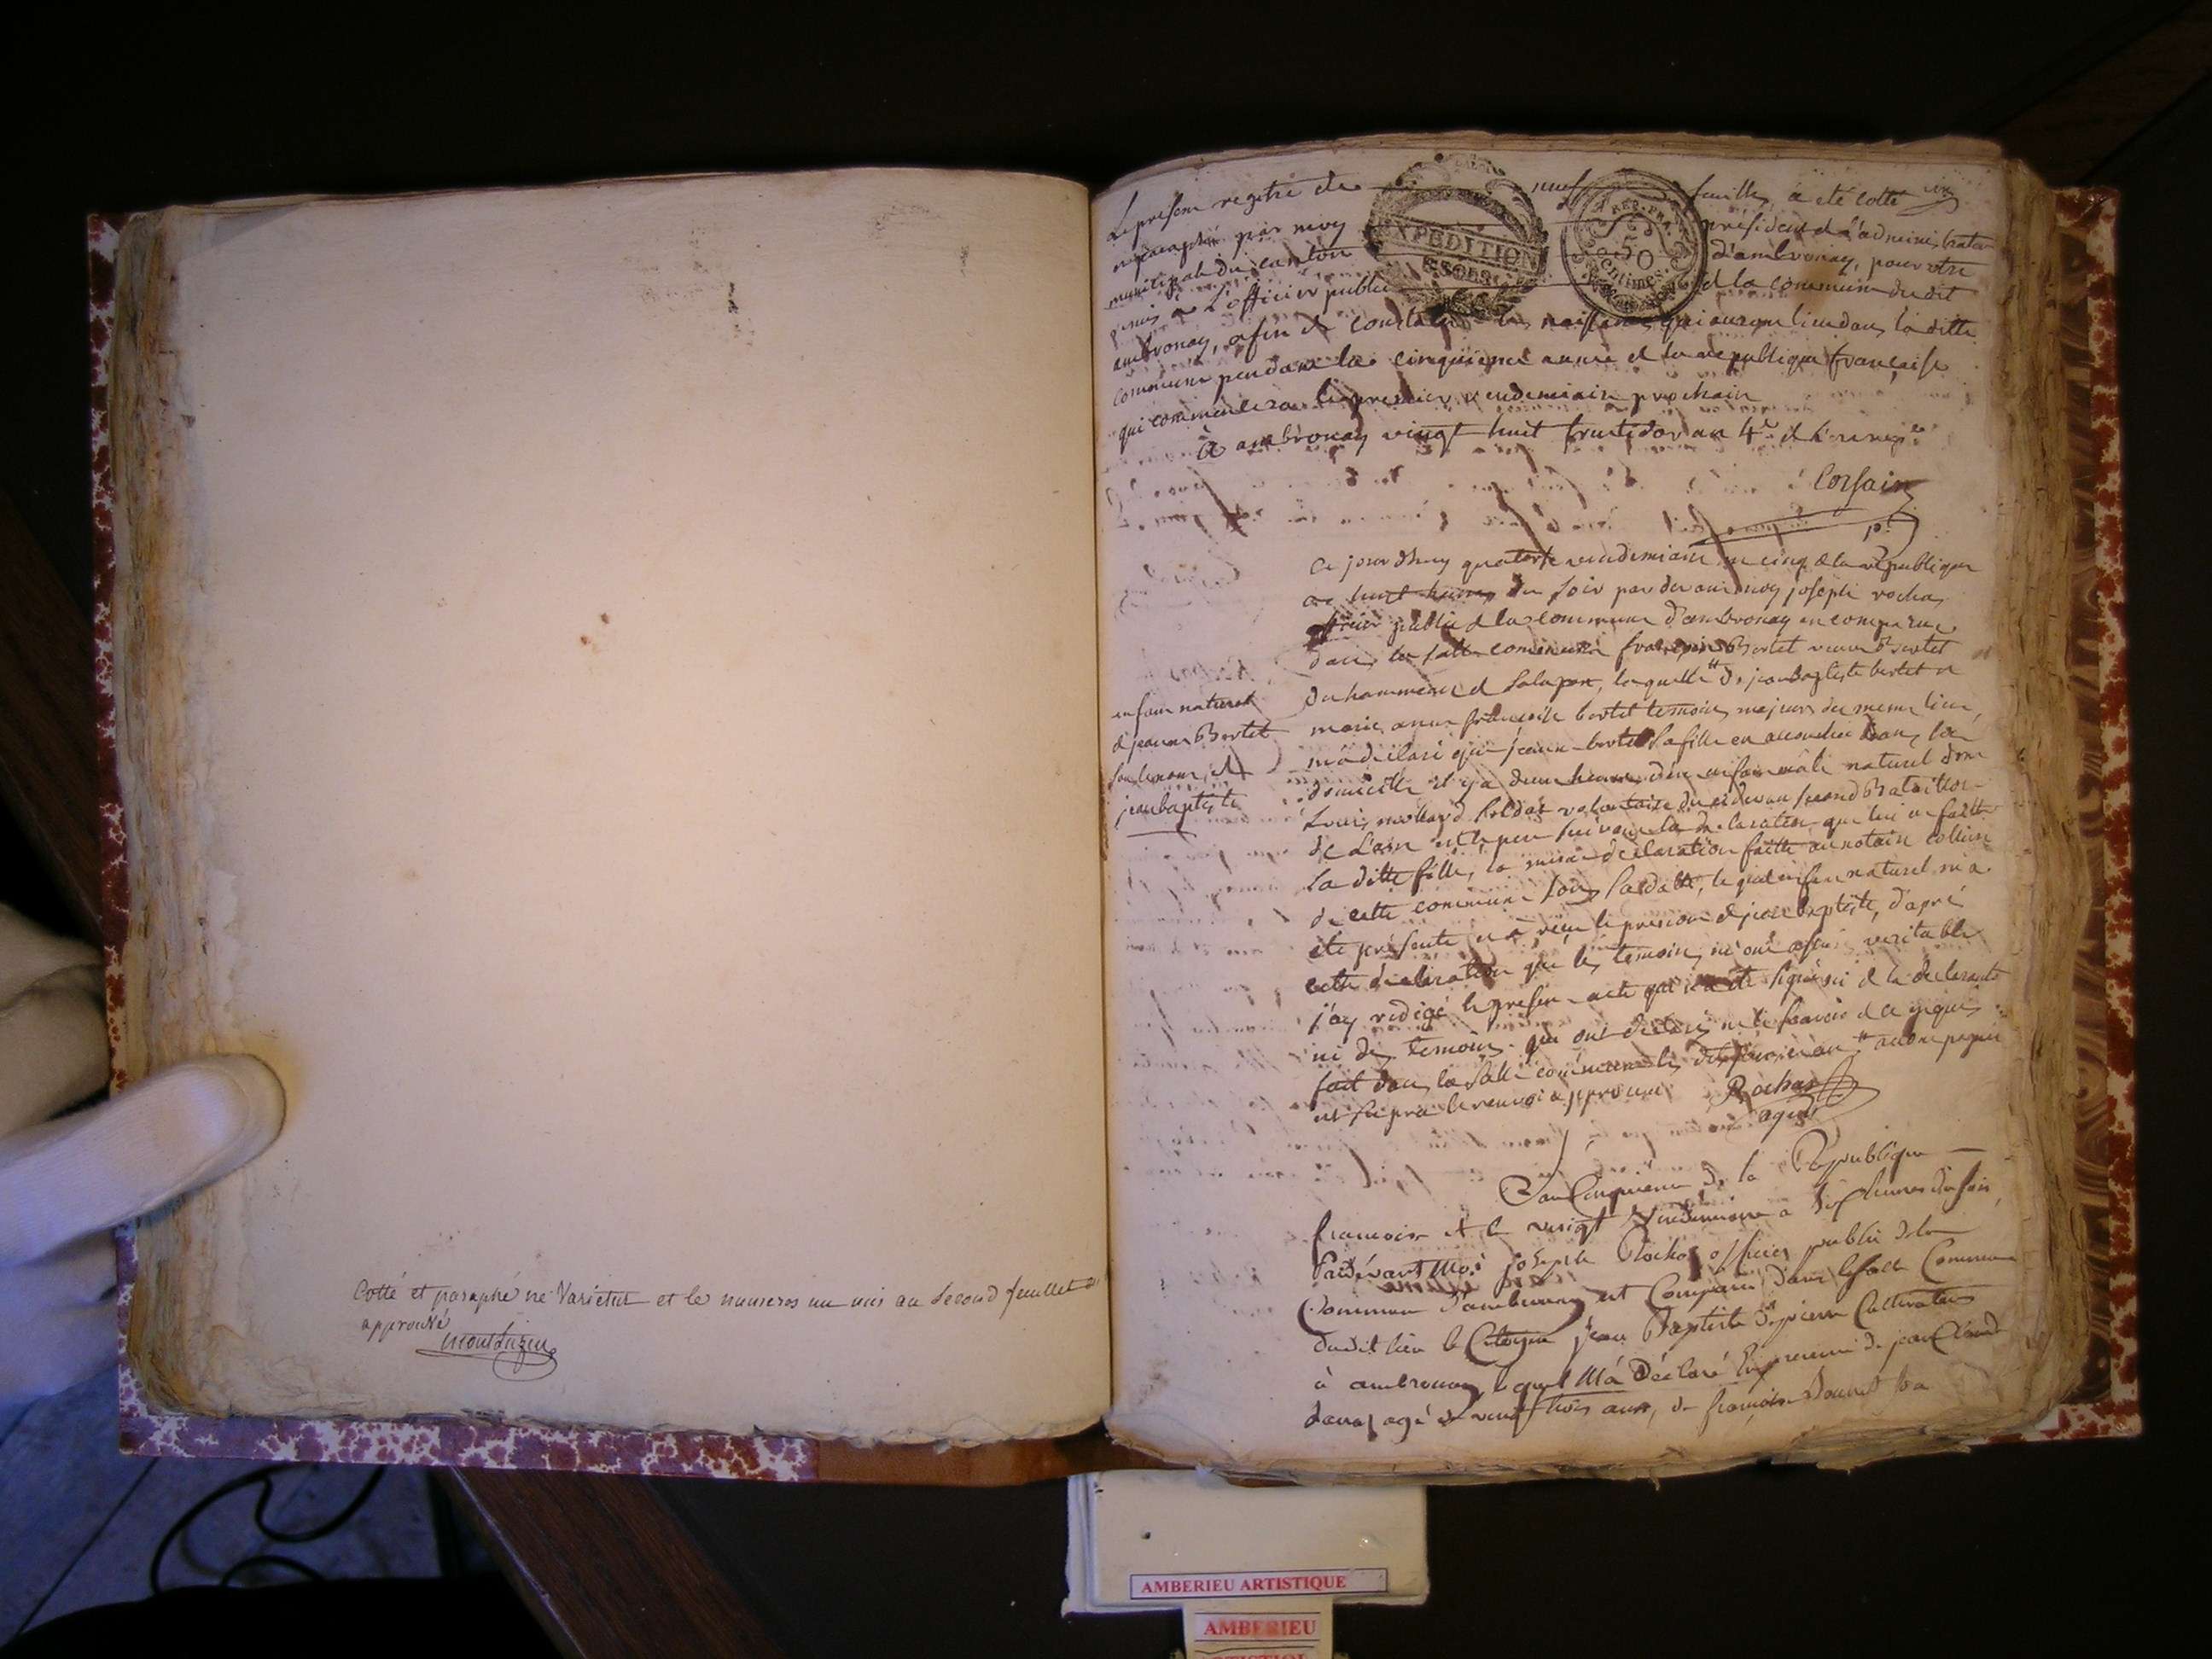 Cotté et paraphé ne varietur et le numeros un mis au second feuillet
approuvé
Le present registre de neuf feuilles, a eté cotté
et paraphé par moy président de l'administration
municipale du canton d'ambronay, pour etre
remis a L'officier public de la commune du dit
ambronay, afin de constater les naissances qui auront lieu dans la ditte
commune pendant la cinquieme année de la republique française
qui commencera le premier vendemiaire prochain
à ambronay vingt huit fructidor an 4e de l'ere rep.
EXPEDITION
REP. FRA.
50
centimes.
enfant naturel
de jeanne Bertet
sous le nom de
jean baptiste
Ce jourd'huy quatorze vendemiaire an cinq de la republique
a huit heures du soir par devant moy joseph rochas
officier public de la commune d'ambronay en comparue
dans la salle commune françoise Bertet veuve Bertet
du hammeau de laquelle de jean Baptiste bertet et
marie anne françoise bertet temoins majeurs du meme lieu,
m'a declaré que jeanne bertet sa fille en accouchée dans son
domicille il y a deux heures d'un enfant mâle naturel dont
Louis mollard soldat volontaire du cidevant second Bataillon
de L'ain est le pere suivant la declaration que lui a faitte
la ditte fille, la meme déclaration faitte au notaire
de cette commune sous sa datte, lequel enfant naturel m'a
été présenté et a reçu le prenom de jean baptiste, d'apré
cette declaration que les temoins m'ont assuré veritable
j'ay redigé le present acte qui n'a été signé ni de la declarante
ni des temoins qui ont declaré ne le scavoir de ce requis
fait dans la salle commune les dits jour et an
ut supra le renvoi approuvé Rochas
agent
L'an Cinquieme de la Republique
francoise et le vingt Vendemiaire a sept heures du soir,
Pardevant Moi joseph Rochas officier public de la
Commune d'ambronay est Comparu dans la salle Commune
dudit lieu le Citoyen jean Baptiste Dupierre Cultivateur
à ambronay lequel M'a Déclaré En presence de jean Claude
agé de vingt trois ans, de françoise
AMBERIEU ARTISTIQUE
AMBERIEU
ARTISTIQUE